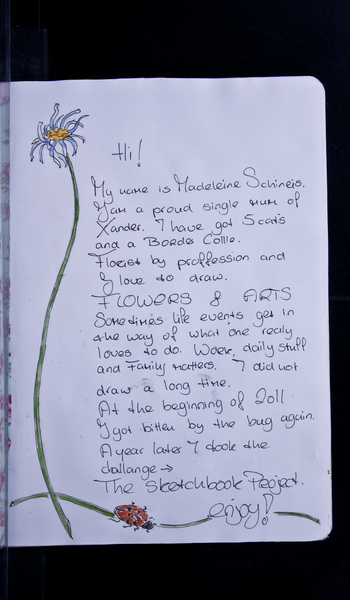 Hi!
My name is Madeleine Schineis.
I am a proud single mum of
Xander. I have got 5 cats
and a Border Collie.
Florist by proffession and
I love to draw.
FLOWERS & ARTS
Sometimes life events get in
the way of what one realy
loves to do. Work, daily stuff
and Family matters. I did not
draw a long time.
At the beginning of 2011
I got bitten by the bug again.
A year later I took the
challange→
The Sketchbook Project.
enjoy!